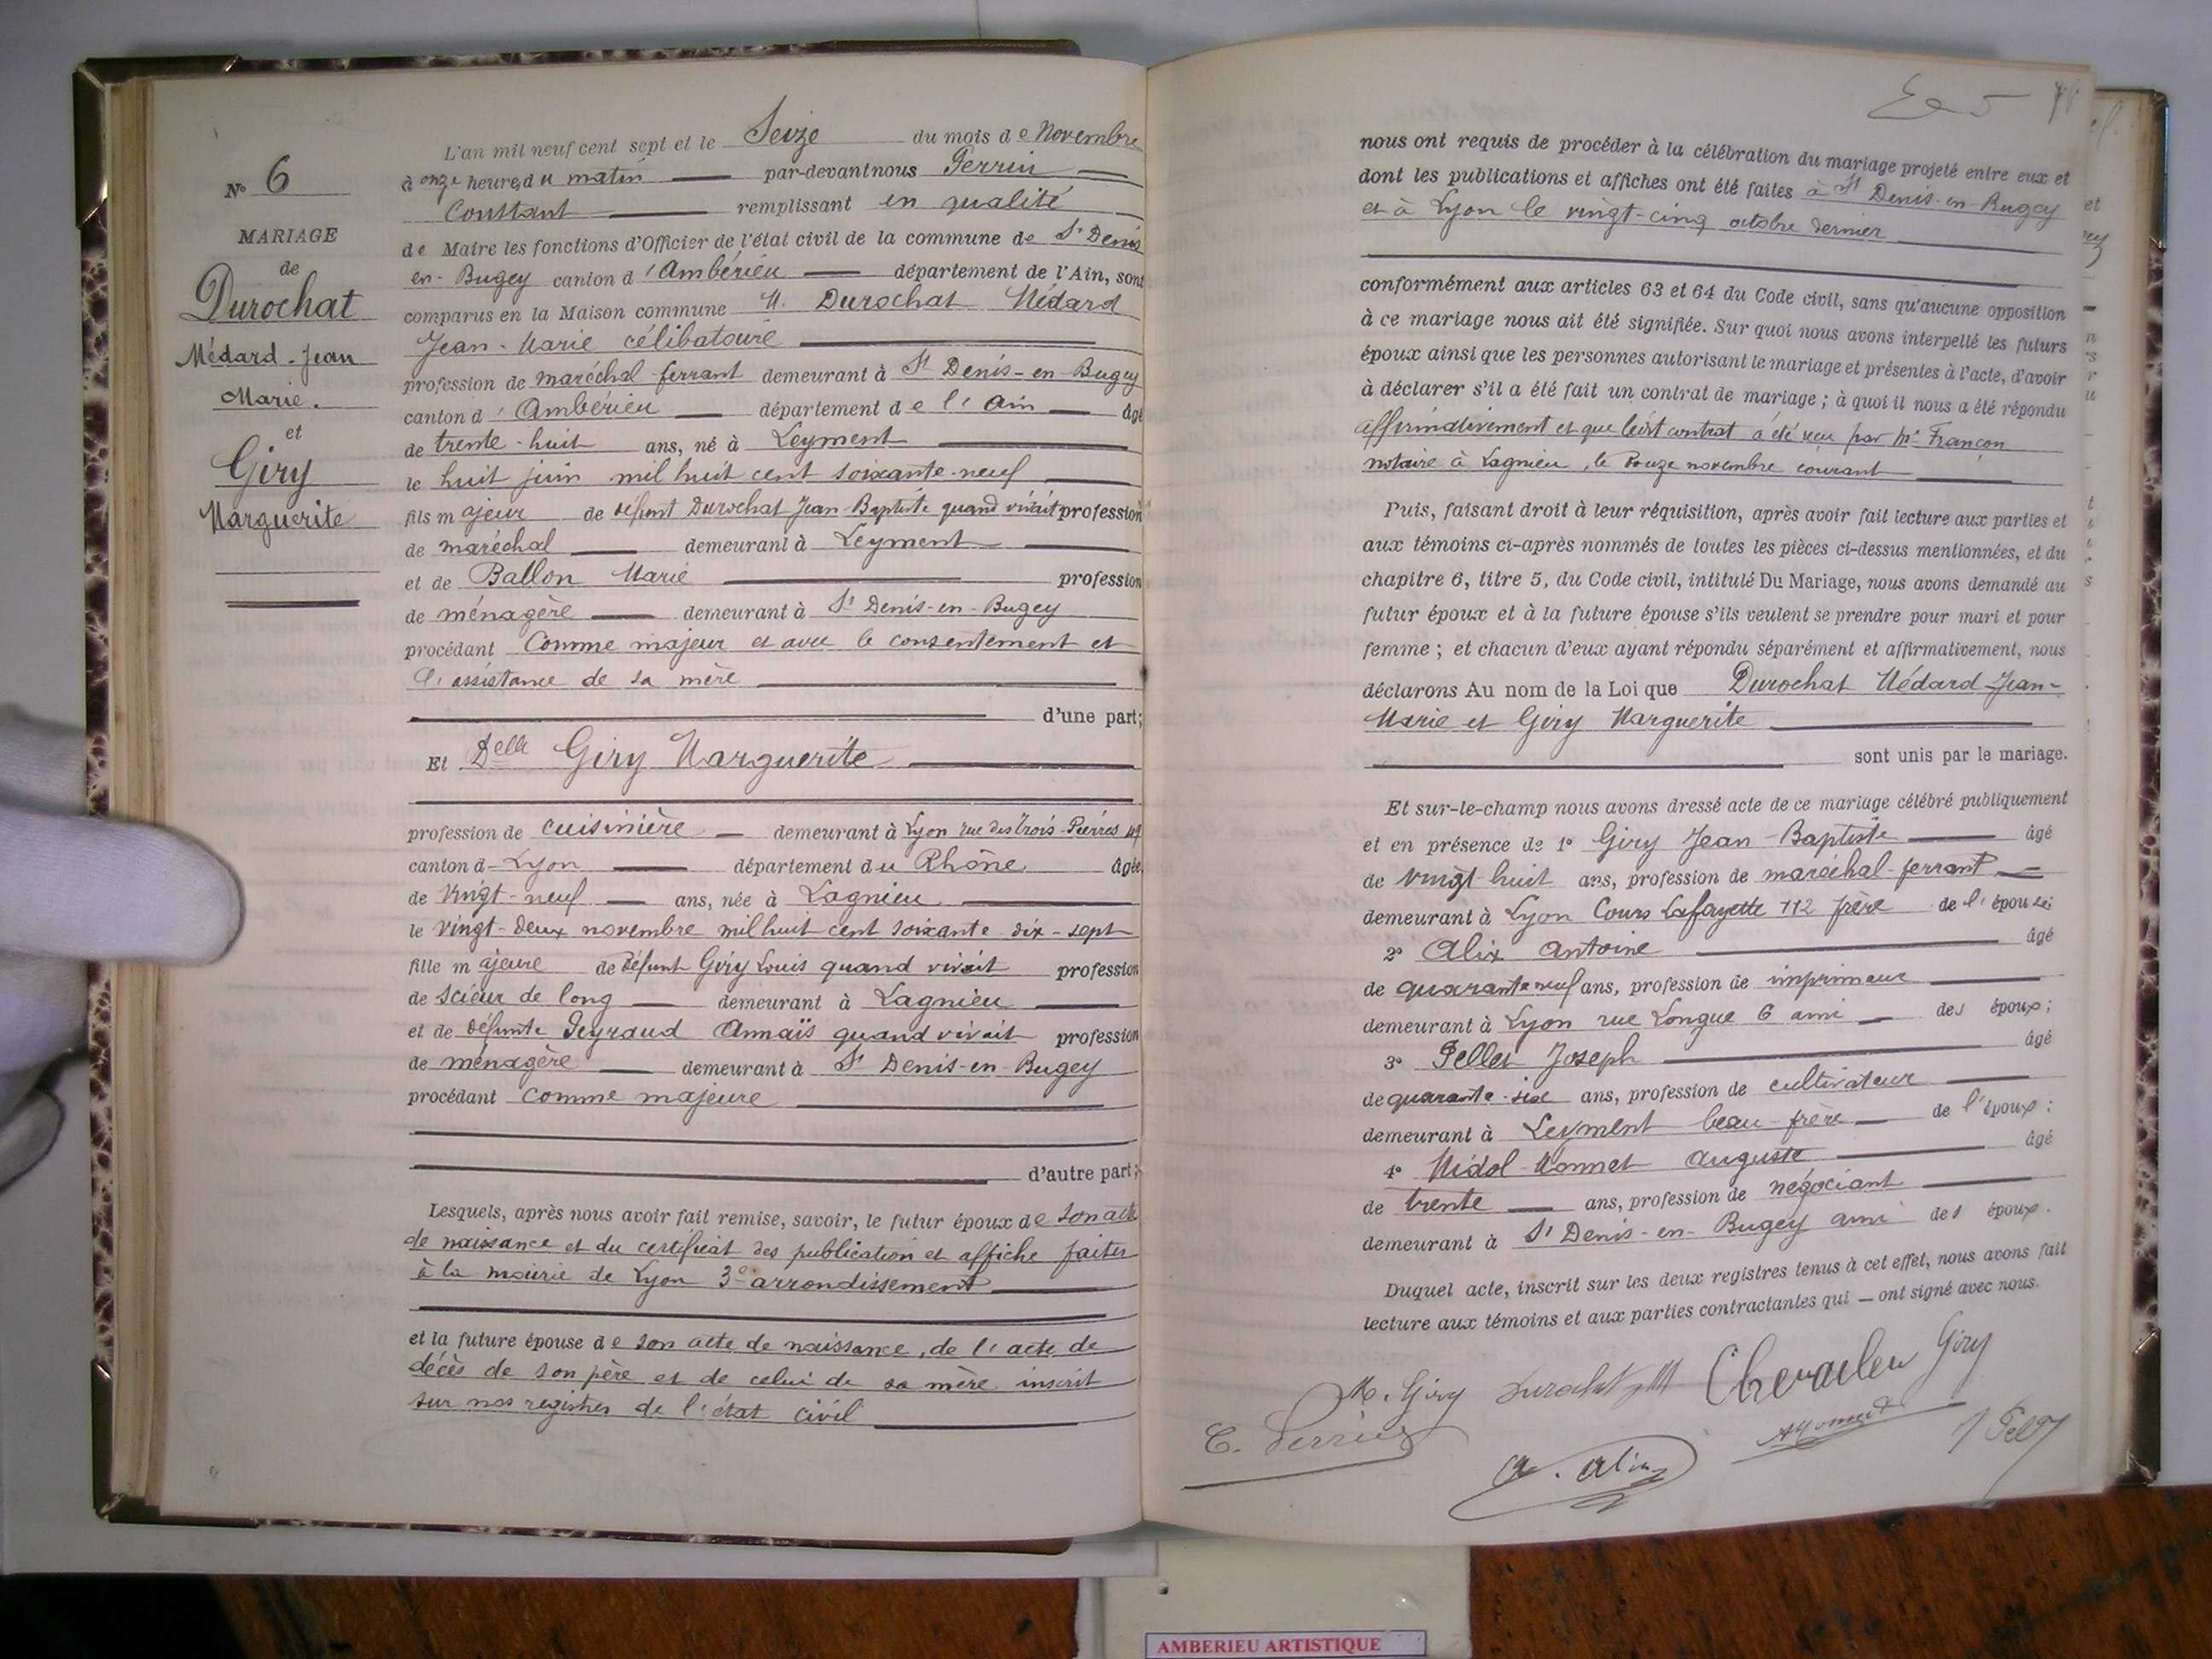 N° 6
MARIAGE
de
Durochat
Médard-Jean
Marie.
et
Giry
Marguerite
L'an mil neuf cent sept et le Seize du mois de Novembre
à onze heures du matin par-devant nous Perrin
Constant remplissant en qualité
de Maire les fonctions d'Officier de l'état civil de la commune de St Denis
en-Bugey canton d'Ambérieu département de l'Ain, sont
comparus en la Maison commune M. Durochat Médard
Jean-Marie célibataire
profession de maréchal-ferrant demeurant à St Denis-en-Bugey
canton d'Ambérieu département de l'Ain âgé
de trente-huit ans, né à Leyment
le huit juin mil huit cent soixante-neuf
fils majeur de défunt Durochat Jean-Baptiste quand vivait profession
de maréchal demeurant à Leyment
et de Ballon Marie profession
de ménagère demeurant à St Denis-en-Bugey
procédant Comme majeur et avec le consentement et
l'assistance de sa mère
d'une part;
Et Delle Giry Marguerite
profession de cuisinière demeurant à Lyon rue des Trois-Pierres
canton d Lyon département du Rhône âgée
de vingt-neuf ans, née à Lagnieu
le vingt-deux novembre mil huit cent soixante-dix-sept
fille majeure de défunt Giry Louis quand vivait profession
de scieur de long demeurant à Lagnieu
et de défunte Peyraud Annaïs quand vivait profession
de ménagère demeurant à St Denis-en-Bugey
procédant comme majeure
d'autre part;
Lesquels, après nous avoir fait remise, savoir, le futur époux de son acte
de naissance et du certificat des publication et affiche faites
à la mairie de Lyon 3e arrondissement
et la future épouse de son acte de naissance, de l'acte de
décès de son père et de celui de sa mère inscrit
sur nos registres de l'état civil
nous ont requis de procéder à la célébration du mariage projeté entre eux et
dont les publications et affiches ont été faites à St Denis-en-Bugey
et à Lyon le vingt-cinq octobre dernier
conformément aux articles 63 et 64 du Code civil, sans qu'aucune opposition
à ce mariage nous ait été signifiée. Sur quoi nous avons interpellé les futurs
époux ainsi que les personnes autorisant le mariage et présentes à l'acte, d'avoir
à déclarer s'il a été fait un contrat de mariage; à quoi il nous a été répondu
affirmativement et que contrat a été reçu par Me Françon
notaire à Lagnieu, le Douze novembre courant
Puis, faisant droit à leur réquisition, après avoir fait lecture aux parties et
aux témoins ci-après nommés de toutes les pièces ci-dessus mentionnées, et du
chapitre 6, titre 5, du Code civil, intitulé Du Mariage, nous avons demandé au
futur époux et à la future épouse s'ils veulent se prendre pour mari et pour
femme; et chacun d'eux ayant répondu séparément et affirmativement, nous
déclarons Au nom de la Loi que Durochat Médard-Jean-
Marie et Giry Marguerite
sont unis par le mariage.
Et sur-le-champ nous avons dressé acte de ce mariage célébré publiquement
et en présence de 1° Giry Jean-Baptiste âgé
de vingt huit ans, profession de maréchal-ferrant
demeurant à Lyon Cours Lafayette 112 frère de l'épouse;
2° Alix Antoine âgé
de quarante neuf ans, profession de imprimeur
demeurant à Lyon rue Longue 6 ami des époux;
3° Pellet Joseph âgé
de quarante-six ans, profession de cultivateur
demeurant à Leyment beau-frère de l'époux;
4° Nidol-Monnet Auguste âgé
de trente ans, profession de négociant
demeurant à St Denis-en-Bugey ami des époux.
Duquel acte, inscrit sur les deux registres tenus à cet effet, nous avons fait
lecture aux témoins et aux parties contractantes qui ont signé avec nous.
M. Giry Durochat Giry
C. Perrin
A. Alix
AMBERIEU ARTISTIQUE